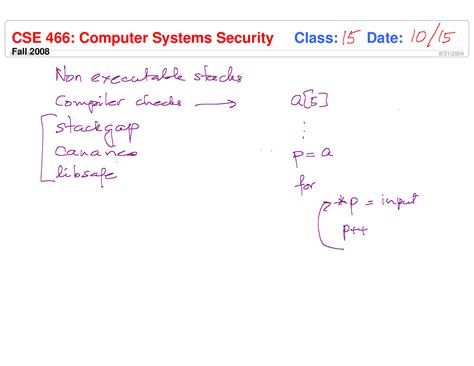 CSE 466: Computer Systems Security Class: 15 Date: 10/15
Fall 2008 8/31/2004
Non executable stacks
Compiler checks → a[5]
stackgap ⋮
Canaries p = a
libsafe for
*p = input
p++